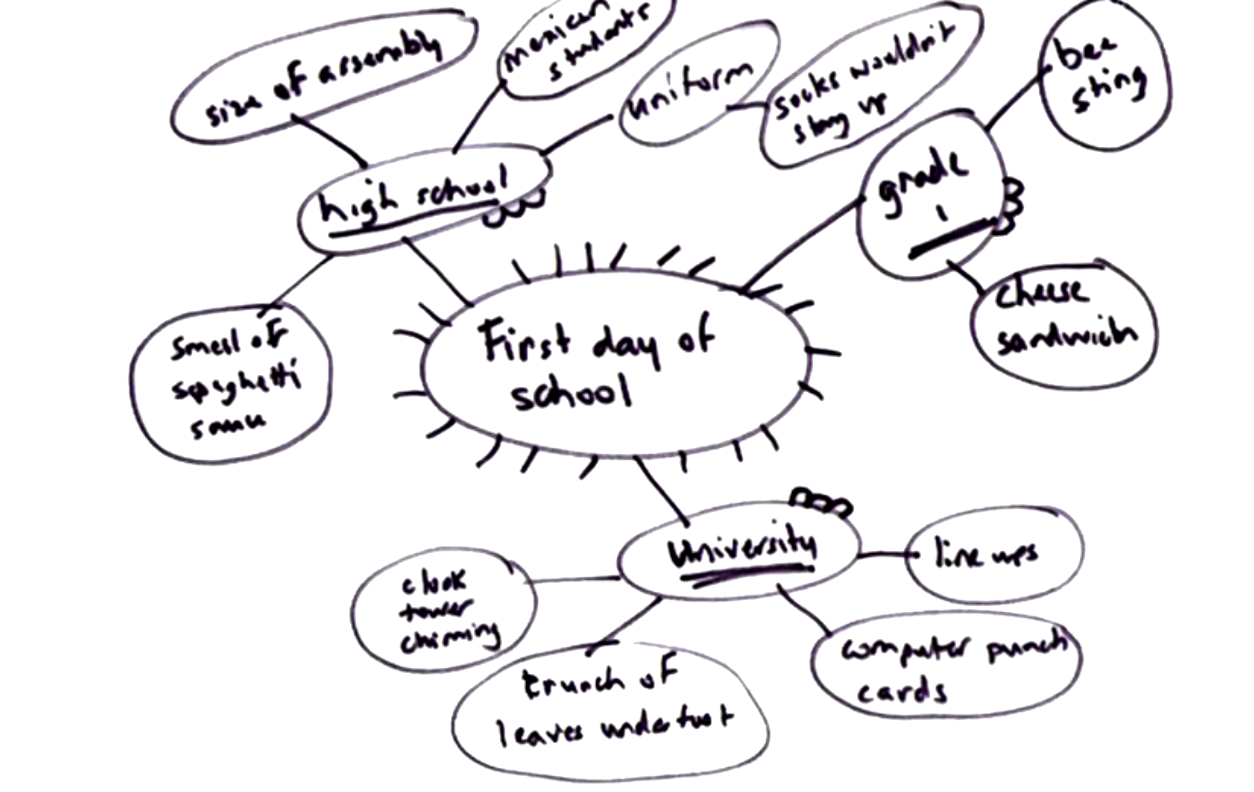 size of assembly
mexican
students
uniform
socks wouldn't
stay up
bee
sting
high school
grade
1
cheese
sandwich
smell of
spaghetti
First day of
school
university
line ups
clock
tower
chiming
computer punch
cards
crunch of
leaves underfoot